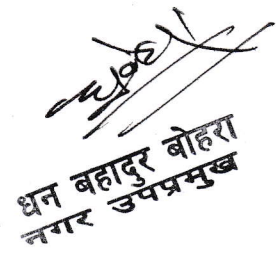 धन बहादुर बोहरा
नगर उपप्रमुख